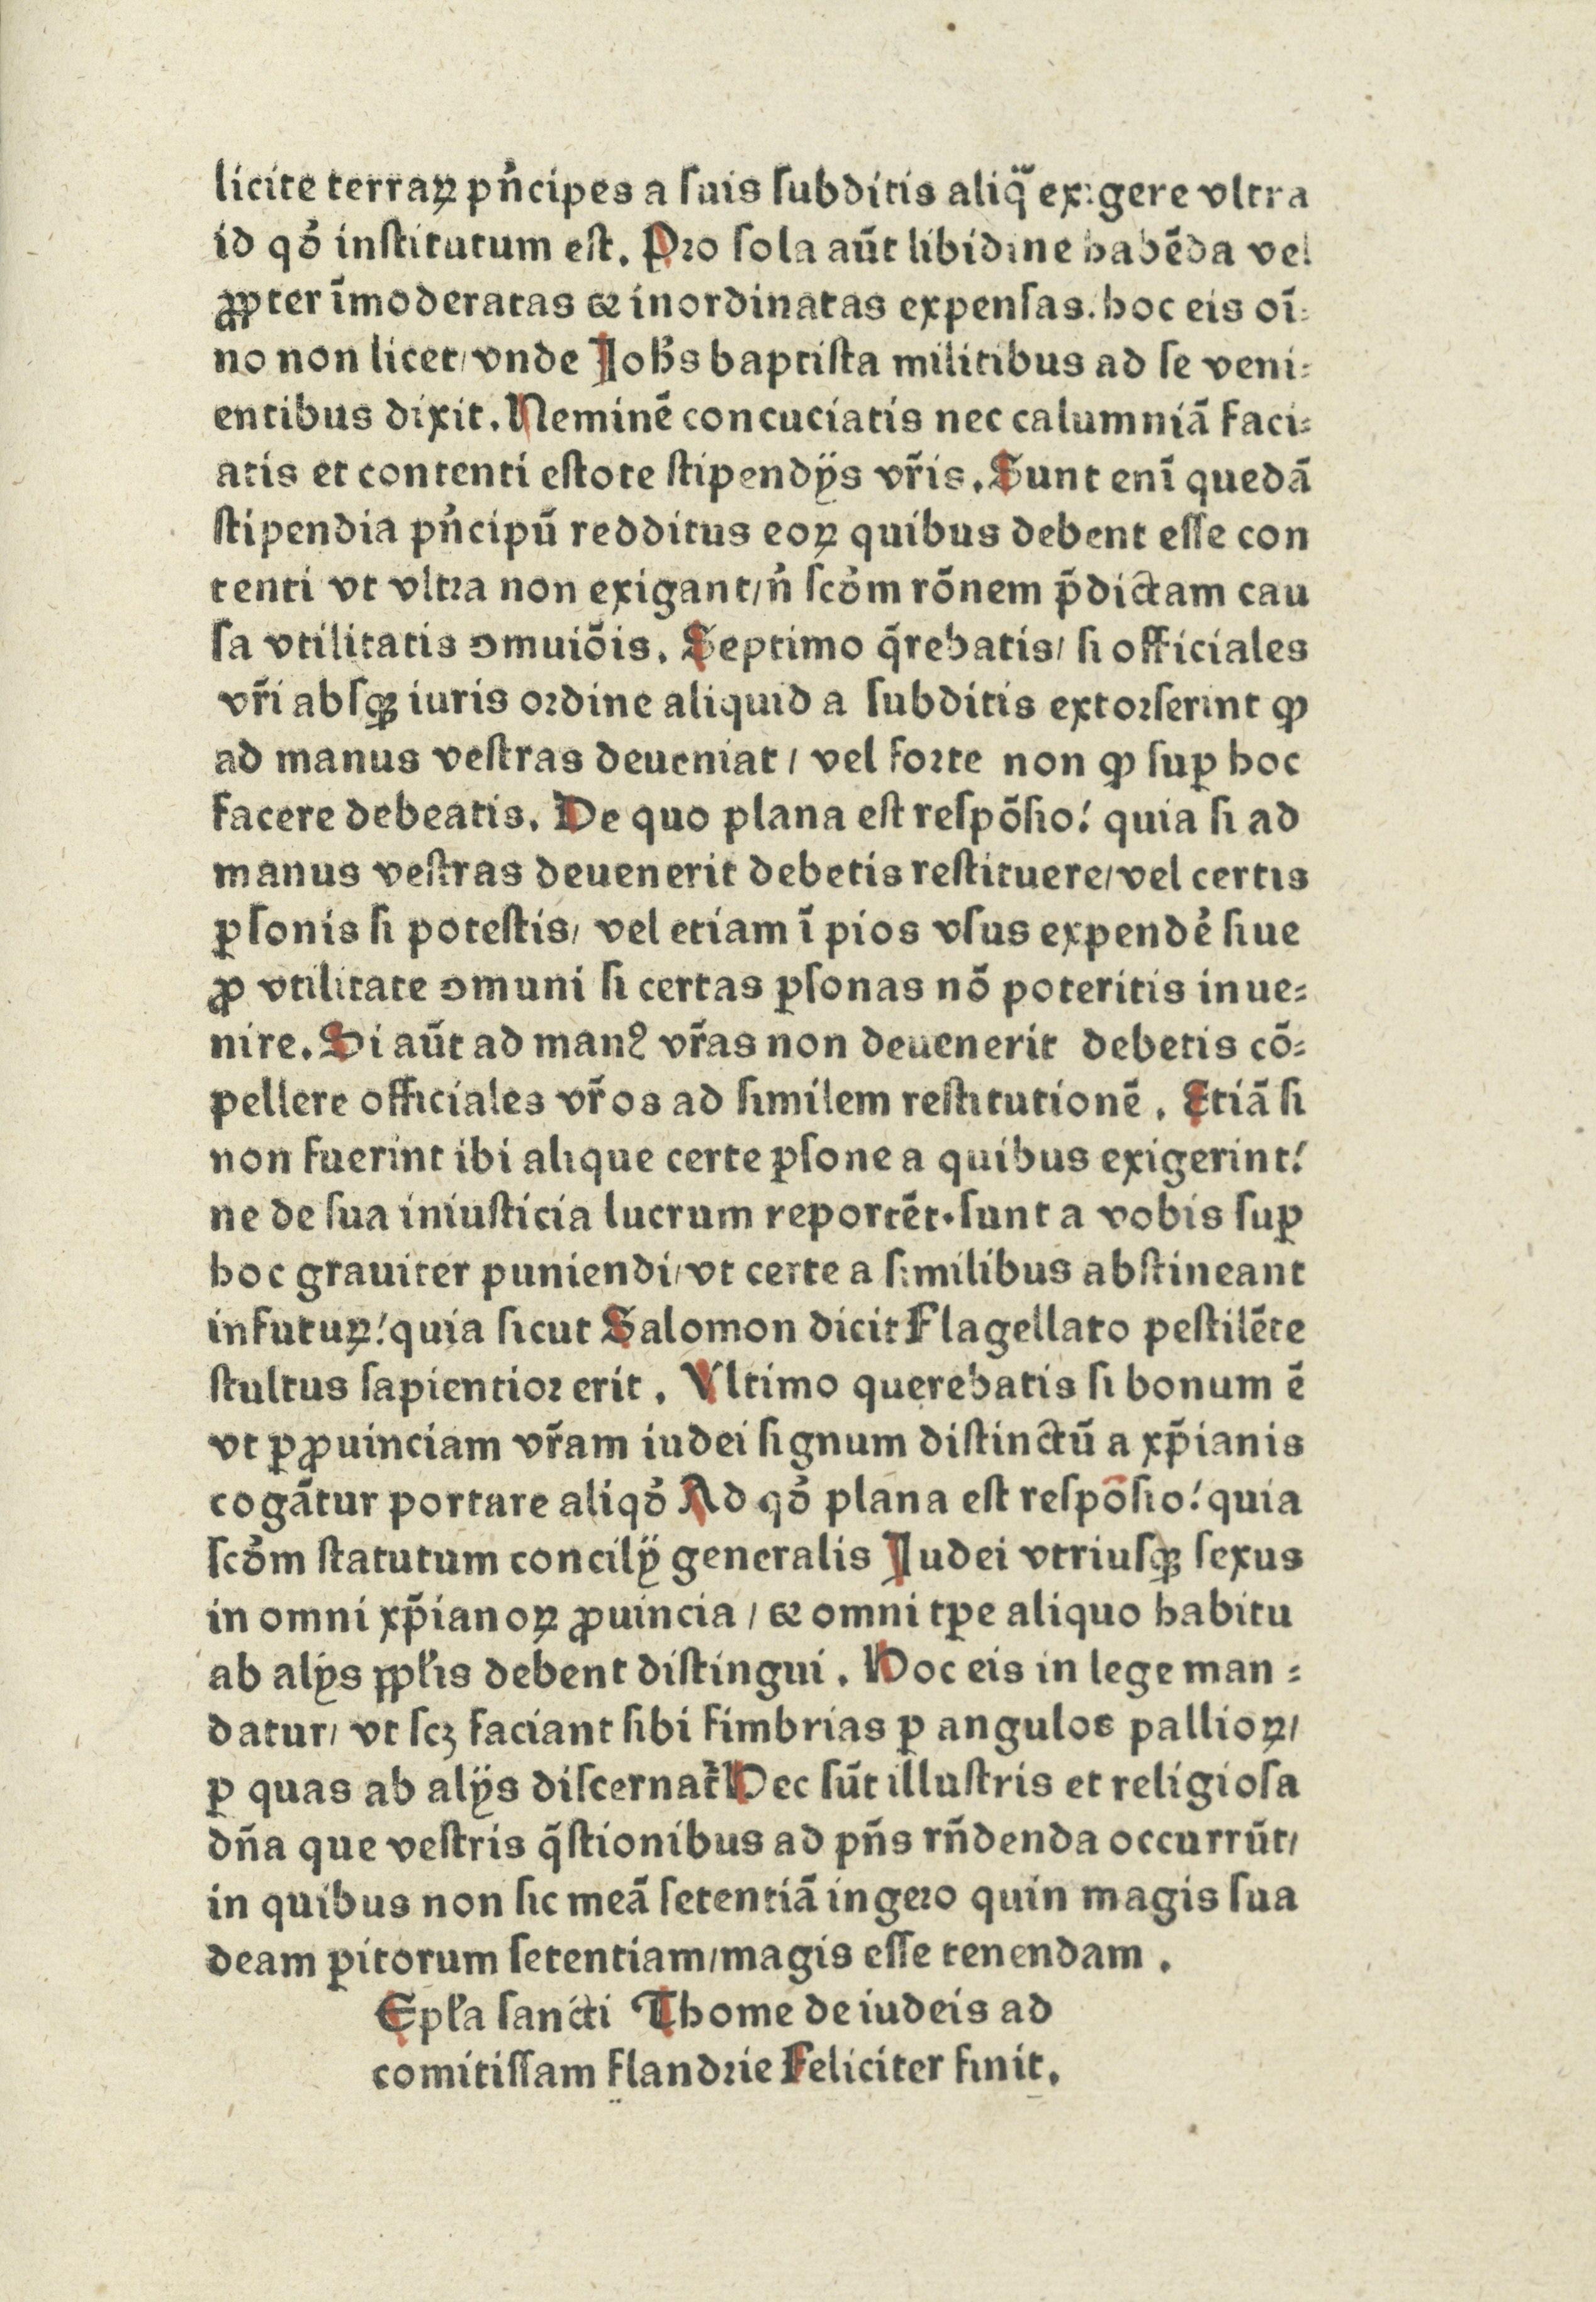 licite terraꝝ pñcipes a ſuis ſubditis aliq̃ exigere vltra
id qď inſtitutum eſt. Pꝛo ſola aūt libidine habēda vel
ꝓpter ĩmoderatas ⁊ inordinatas expenſas. hoc eis oĩ⸗
no non licet/ vnde Joħs baptiſta militibus ad ſe veni⸗
entibus dixit. Neminē concuciatis nec calumniā faci⸗
atis et contenti eſtote ſtipendÿs vr̃is. Sunt enĩ quedā
ſtipendia pñcipū redditus eoꝝ quibus debent eſſe con
tenti vt vltꝛa non exigant/ n̉ ſcďm rōnem p̃dictam cau
ſa vtilitatis ↄmuiōis. Septimo q̃rebatis/ ſi officiales
vr̃i abſqꝫ iuris oꝛdine aliquid a ſubditis extoꝛſerint ꝙ
ad manus veſtras deueniat / vel foꝛte non ꝙ ſuꝑ hoc
facere debeatis. De quo plana eſt reſpōſio! quia ſi ad
manus veſtras deuenerit debetis reſtituere/ vel certis
ꝑſonis ſi poteſtis/ vel etiam ĩ pios vſus expendē ſiue
ꝓ vtilitate ↄmuni ſi certas ꝑſonas nō poteritis inue⸗
nire. Si aūt ad manꝰ vr̃as non deuenerit debetis cō⸗
pellere officiales vr̃os ad ſimilem reſtitutionē. Etiā ſi
non fuerint ibi alique certe ꝑſone a quibus exigerint!
ne de ſua iniuſticia lucrum reportēt. ſunt a vobis ſuꝑ
hoc grauiter puniendi/ vt certe a ſimilibus abſtineant
infutuꝝ! quia ſicut Salomon dicit Flagellato peſtilēte
ſtultus ſapientioꝛ erit. Vltimo querebatis ſi bonum ē
vt ꝑ ꝓuinciam vr̃am iudei ſignum diſtinctū a xp̃ianis
cogātur portare aliqď Ad qď plana eſt reſpōſio! quia
ſcďm ſtatutum concilÿ generalis Judei vtriuſqꝫ ſexus
in omni xp̃ianoꝝ ꝓuincia / ⁊ omni tꝑe aliquo habitu
ab alÿs ꝓpl̃is debent diſtingui. Hoc eis in lege man⸗
datur/ vt ſcꝫ faciant ſibi fimbrias ꝑ angulos pallioꝝ/
ꝑ quas ab alÿs diſcernat᷑ Hec ſūt illuſtris et religioſa
dña que veſtris q̃ſtionibus ad pñs rñdenda occurrūt/
in quibus non ſic meā ſetentiā ingeꝛo quin magis ſua
deam ꝑitorum ſetentiam/ magis eſſe tenendam.
Epl̃a ſancti Thome de iudeis ad
comitiſſam flandꝛie Feliciter finit.